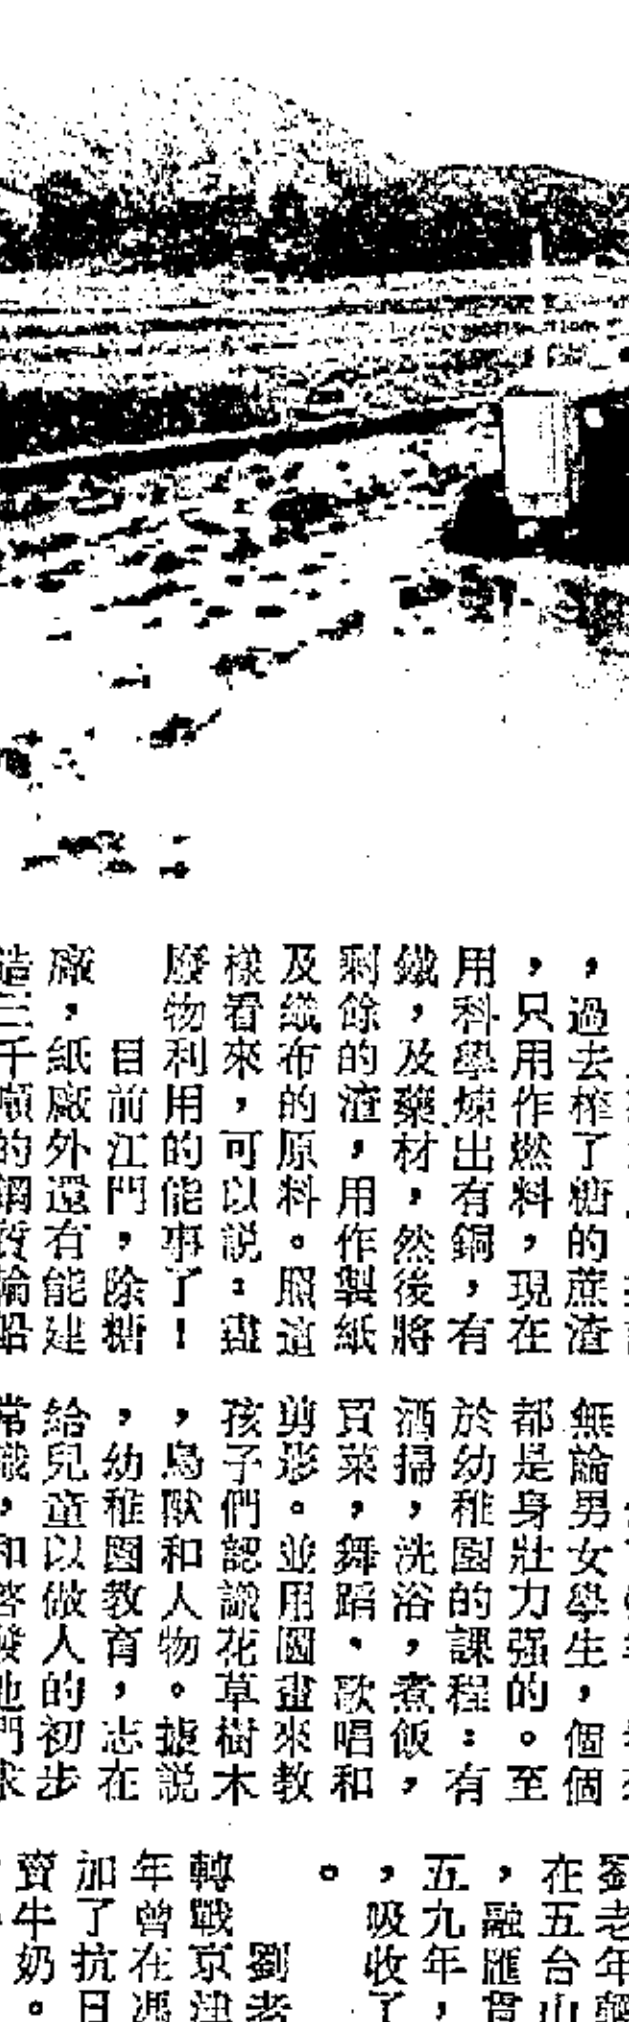 ，過去榨了糖的蔗渣
，只用作燃料，現在
用科學煉出有銅，有
鐵，及藥材，然後將
剩餘的渣，用作製紙
及織布的原料。照這
樣看來，可以說：盡
廢物利用的能事了！
目前江門，除糖
廠，紙廠外還有能建
造三千噸的鋼質輪船
無論男女學生，個個
都是身壯力强的。至
於幼稚園的課程：有
酒掃，洗浴，煮飯，
買菜，舞蹈，歌唱和
剪影。並用圖畫來教
孩子們認識花草樹木
，鳥獸和人物。據說
，幼稚園教育，志在
給兒童以做人的初步
常識，和啓發他們求
劉老年輕
在五台山
，融匯貫
五九年，
，吸收了
。
劉老
轉戰京津
年曾在馮
加了抗日
賣牛奶。